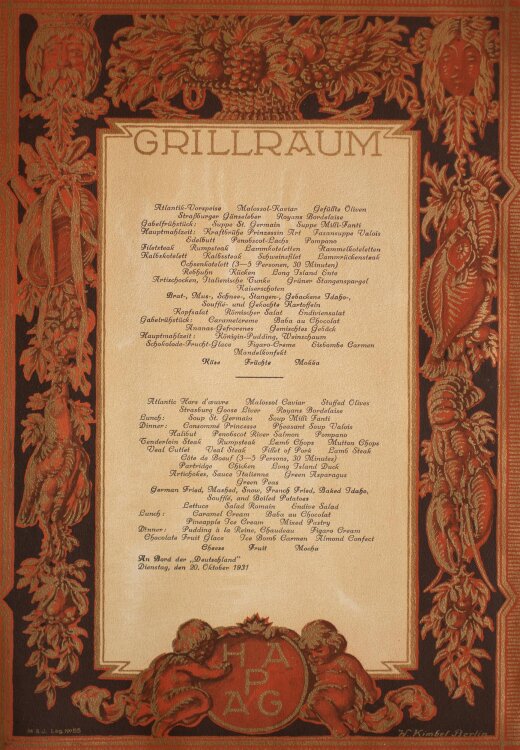 GRILLRAUM
Atlantik-Vorspeise Malossol-Kaviar Gefüllte Oliven
Straßburger Gänseleber Royans Bordelaise
Gabelfrühstück: Suppe St. Germain Suppe Milli-Fanti
Hauptmahlzeit: Kraftbrühe Prinzessin Art Fasansuppe Valois
Edelbutt Penobscot-Lachs Pompano
Filetsteak Rumpsteak Lammkoteletten Hammelkoteletten
Kalbskotelett Kalbssteak Schweinsfilet Lammrückensteak
Ochsenkotelett (3—5 Personen, 30 Minuten)
Rebhuhn Kücken Long Island Ente
Artischocken, Italienische Tunke Grüner Stangenspargel
Kaiserschoten
Brat-, Mus-, Schnee-, Stangen-, Gebackene Idaho-,
Soufflé- und Gekochte Kartoffeln
Kopfsalat Römischer Salat Endiviensalat
Gabelfrühstück: Caramelcreme Baba au Chocolat
Ananas-Gefrorenes Gemischtes Gebäck
Hauptmahlzeit: Königin-Pudding, Weinschaum
Schokolade-Frucht-Glace Figaro-Creme Eisbombe Carmen
Mandelkonfekt
Käse Früchte Mokka
Atlantic Hors d'œuvre Malossol Caviar Stuffed Olives
Strasburg Goose Liver Royans Bordelaise
Lunch: Soup St. Germain Soup Milli Fanti
Dinner: Consommé Princesse Pheasant Soup Valois
Halibut Penobscot River Salmon Pompano
Tenderloin Steak Rumpsteak Lamb Chops Mutton Chops
Veal Cutlet Veal Steak Fillet of Pork Lamb Steak
Côte de Boeuf (3—5 Persons, 30 Minutes)
Partridge Chicken Long Island Duck
Artichokes, Sauce Italienne Green Asparagus
Green Peas
German Fried, Mashed, Snow, French Fried, Baked Idaho,
Soufflé, and Boiled Potatoes
Lettuce Salad Romain Endive Salad
Lunch: Caramel Cream Baba au Chocolat
Pineapple Ice Cream Mixed Pastry
Dinner: Pudding à la Reine, Chaudeau Figaro Cream
Chocolate Fruit Glace Ice Bomb Carmen Almond Confect
Cheese Fruit Mocha
An Bord der „Deutschland"
Dienstag, den 20. Oktober 1931
HAPAG
M & J. Lag. No 55
W. Kimbel Berlin